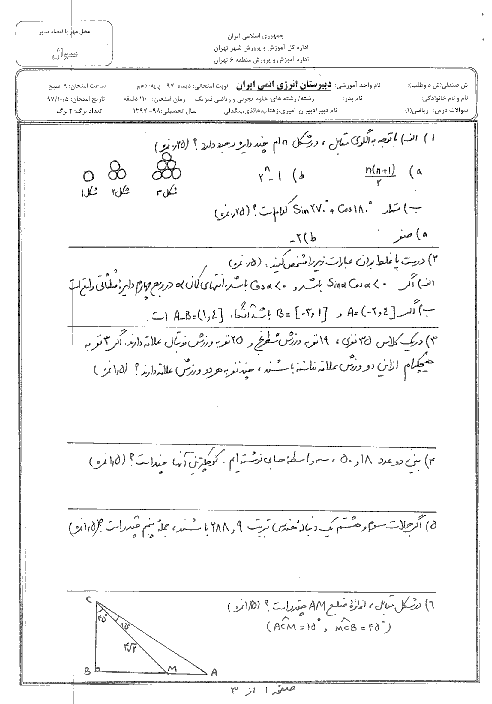 جمهوری اسلامی ایران
اداره کل آموزش و پرورش شهر تهران
اداره آموزش و پرورش منطقه ۶ تهران
محل مهر یا امضاء مدیر
نام واحد آموزشی: دبیرستان انرژی اتمی ایران
نوبت امتحانی: دیماه ۹۷
ساعت امتحان: ۹ صبح
نام و نام خانوادگی:
نام پدر:
رشته/رشته های: علوم تجربی و ریاضی فیزیک
تاریخ امتحان: ۹۷/۱۰/۵
سوالات درس: ریاضی(۱)
سال تحصیلی: ۹۸-۱۳۹۷
تعداد برگه: ۲ برگ
۱) الف) با توجه به الگوی مقابل، در شکل n ام چند دایره وجود دارد؟ (۰/۲۵ نمره)
a) n(n+1)/2 b) 2ⁿ - 1
شکل۱ شکل۲ شکل۳
ب) مقدار Sin ۲۷۰° + Cos ۱۸۰° کدام است؟ (۰/۲۵ نمره)
a) صفر b) -۲
۲) درست یا غلط بودن عبارات زیر را مشخص کنید. (۰/۵ نمره)
الف) اگر Sinα Cosα < ۰ باشد و Cosα < ۰ باشد، انتهای کمان α در ربع چهارم دایره مثلثاتی واقع است
ب) اگر A = (-۲, ۴] و B = [-۲, ۱] باشد آنگاه، A-B = (۱, ۴] است.
۳) در یک کلاس ۳۵ نفری، ۱۹ نفر به ورزش شطرنج و ۲۵ نفر به ورزش فوتبال علاقه دارند. اگر ۳ نفر به
هیچکدام از این دو ورزش علاقه نداشته باشند، چند نفر به هر دو ورزش علاقه دارند؟ (۱/۵ نمره)
۴) بین دو عدد ۱۸ و ۵۰، سه واسطه حسابی نوشته ایم. کوچکترین آنها چند است؟ (۱/۵ نمره)
۵) اگر جملات سوم و هشتم یک دنباله هندسی به ترتیب ۹ و ۲۸۸ باشند، جمله پنجم چقدر است؟ (۱/۵ نمره)
۶) در شکل مقابل، اندازه ضلع AM چقدر است؟ (۱/۵ نمره)
(AĈM = ۱۵°, MĈB = ۴۵°)
C
۴۵° ۱۵°
B M A
صفحه ۱ از ۳